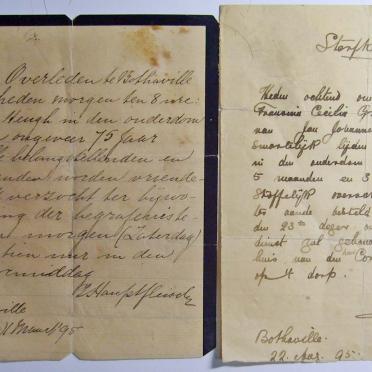 Overleden te Bothaville
heden morgen ten 8 ure:
Heugh in den ouderdom
ongeveer 75 Jaar
belangstellenden en
worden vriende-
verzocht ter bijwo-
ng der begrafenisse-
morgen (Zaterdag)
tien uur in den
middag
Hauptfleisch
ville
Maart '95
Sterfk
Heden ochtend ov
Francina Cecilia
van Jan Johann
smartelijk lijden
in den ouderdom
5 maanden en 3
Stoffelijk oversc
te aarde besteld
den 23sten dezer
dienst zal gehou
huis van den
op 't dorp.
Bothaville.
22 Mar. 95.